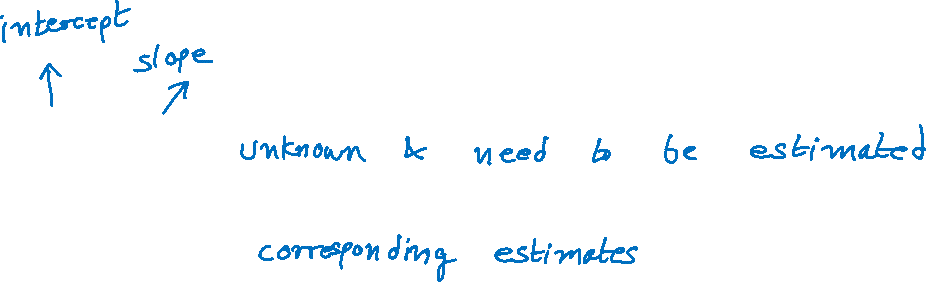 intercept
slope
unknown & need to be estimated
corresponding estimates